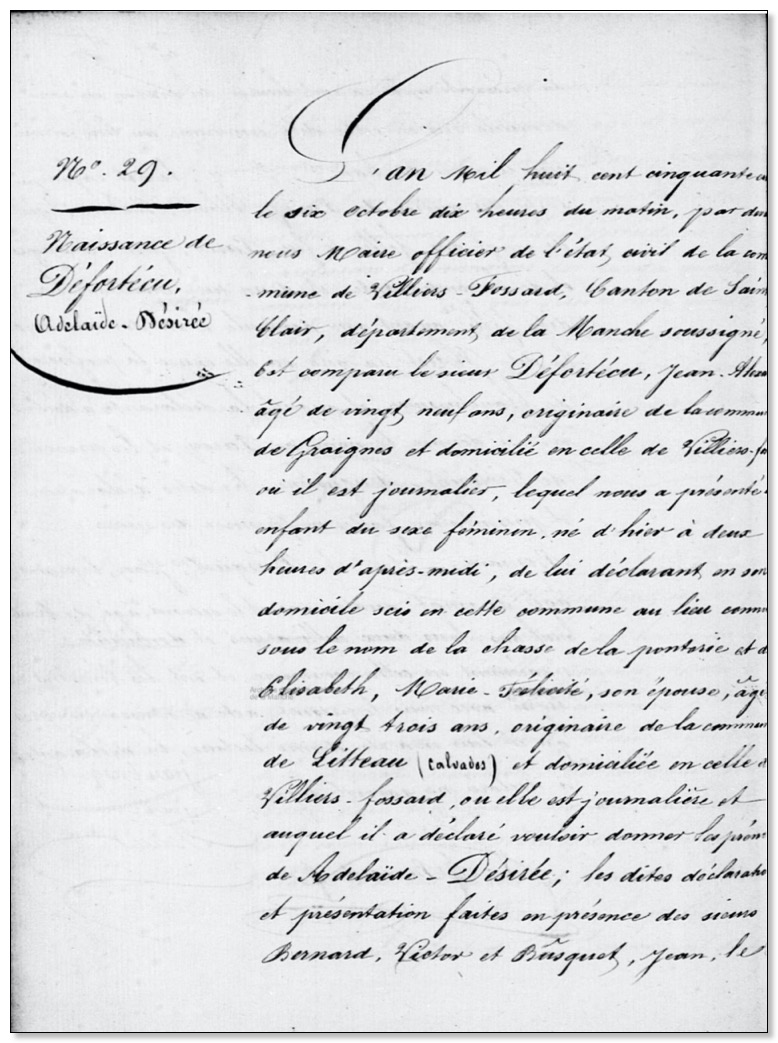 N.o 29.
Naissance de
Défortécu,
Adelaïde - Désirée
L'an Mil huit cent cinquante
le six octobre dix heures du matin, par
nous Maire officier de l'état civil de la com
-mune de Villiers-Fossard, Canton de Sain
Clair, département de la Manche soussigné,
Est comparu le sieur Défortécu, Jean-
âgé de vingt neuf ans, originaire de la commu
de Graignes et domicilié en celle de Villiers-fo
où il est journalier, lequel nous a présenté
enfant du sexe féminin, né d'hier à deux
heures d'après-midi, de lui déclarant en son
domicile scis en cette commune au lieu connu
sous le nom de la chasse de la ponterie et d
Elisabeth, Marie-Félicité, son épouse, âgé
de vingt trois ans, originaire de la commun
de Litteau (Calvados) et domiciliée en celle d
Villiers-fossard, où elle est journalière et
auquel il a déclaré vouloir donner les prén
de Adelaïde - Désirée; les dites déclaratio
et présentation faites en présence des sieurs
Bernard, Victor et Busquet, Jean, le